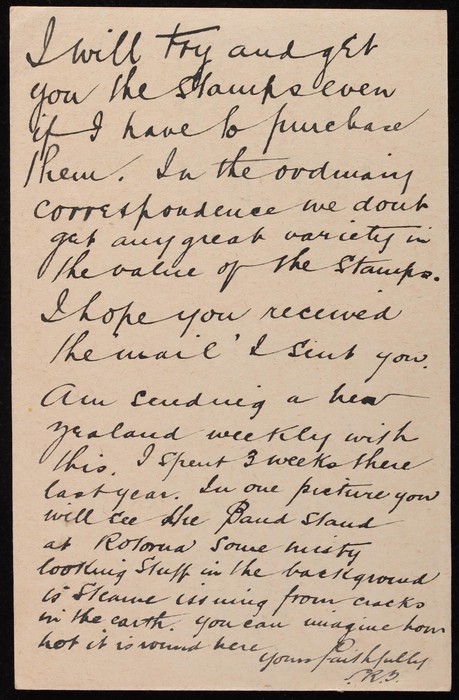 I will try and get
you the Stamps even
if I have to purchase
them. In the ordinary
correspondence we dont
get any great variety in
the value of the Stamps.
I hope you received
the 'mail' I sent you.
Am sending a new
zealand weekly with
this. I spent 3 weeks there
last year. In one picture you
will see the Band Stand
at Rotorua some misty
looking stuff in the background
is Steam issuing from cracks
in the earth. you can imagine how
hot it is round here
yours faithfully